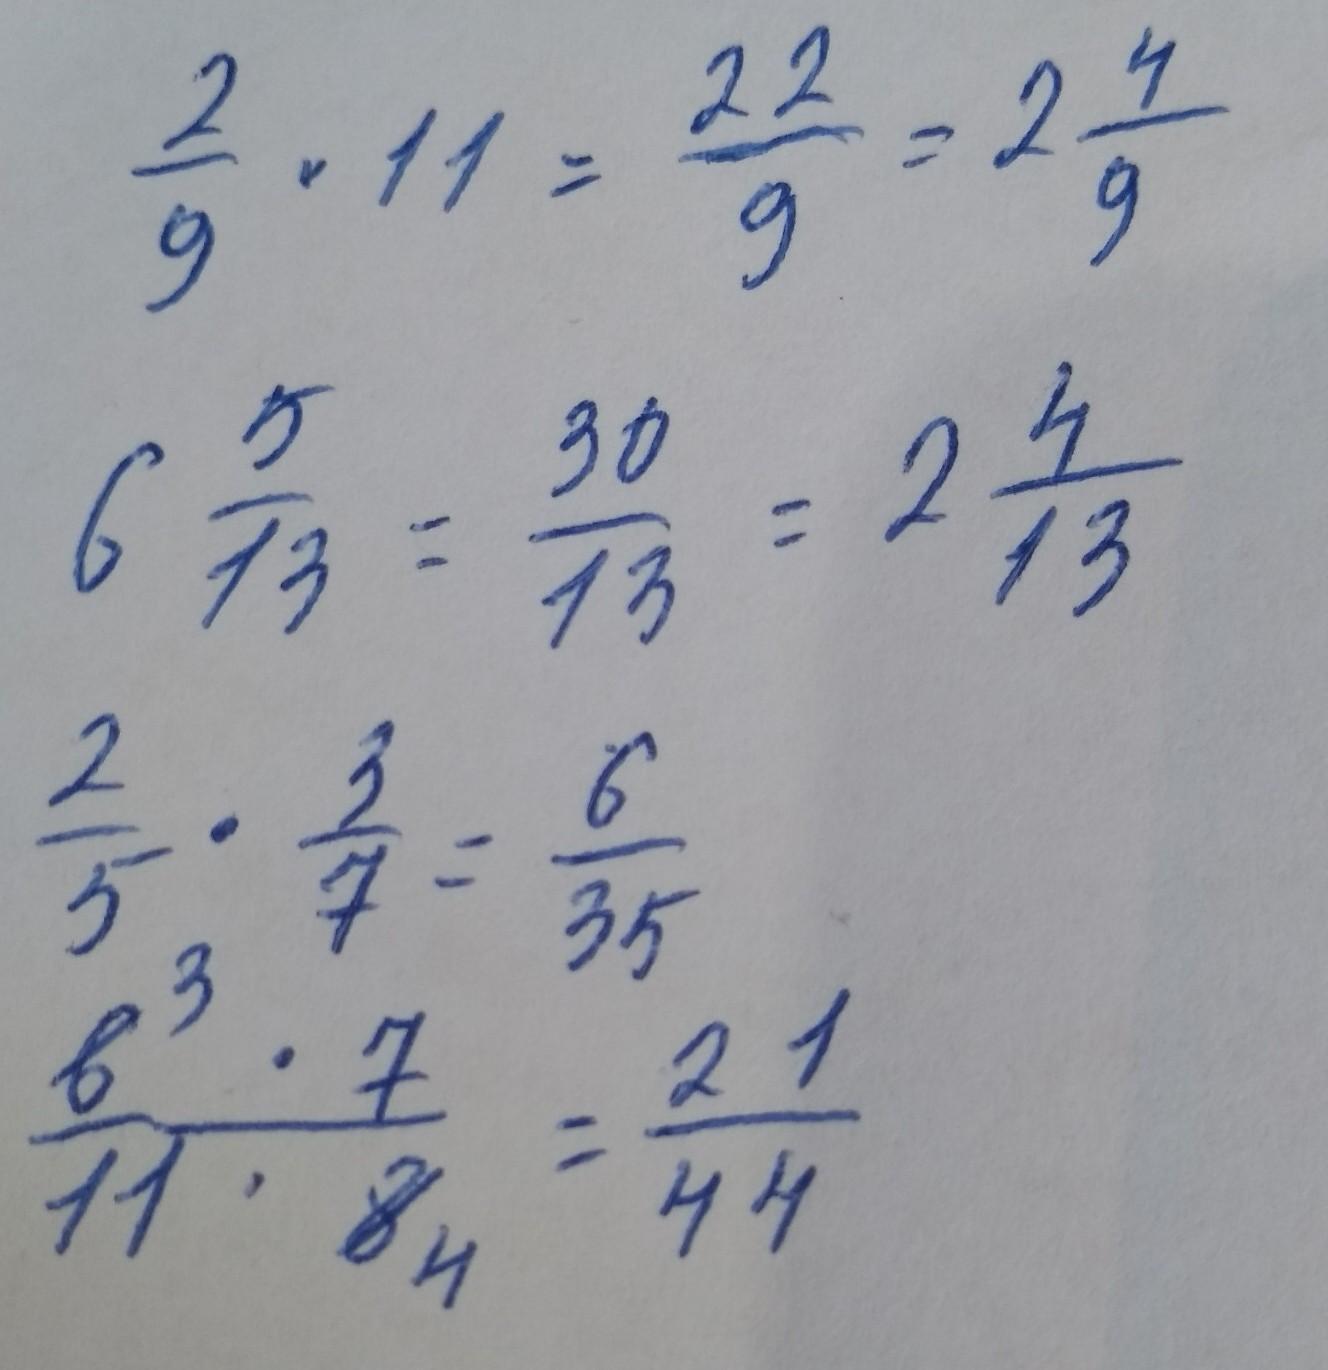 2/9 · 11 = 22/9 = 2 4/9
6 5/13 = 30/13 = 2 4/13
2/5 · 3/7 = 6/35
6³ · 7 / 11 · 8₄ = 21/44